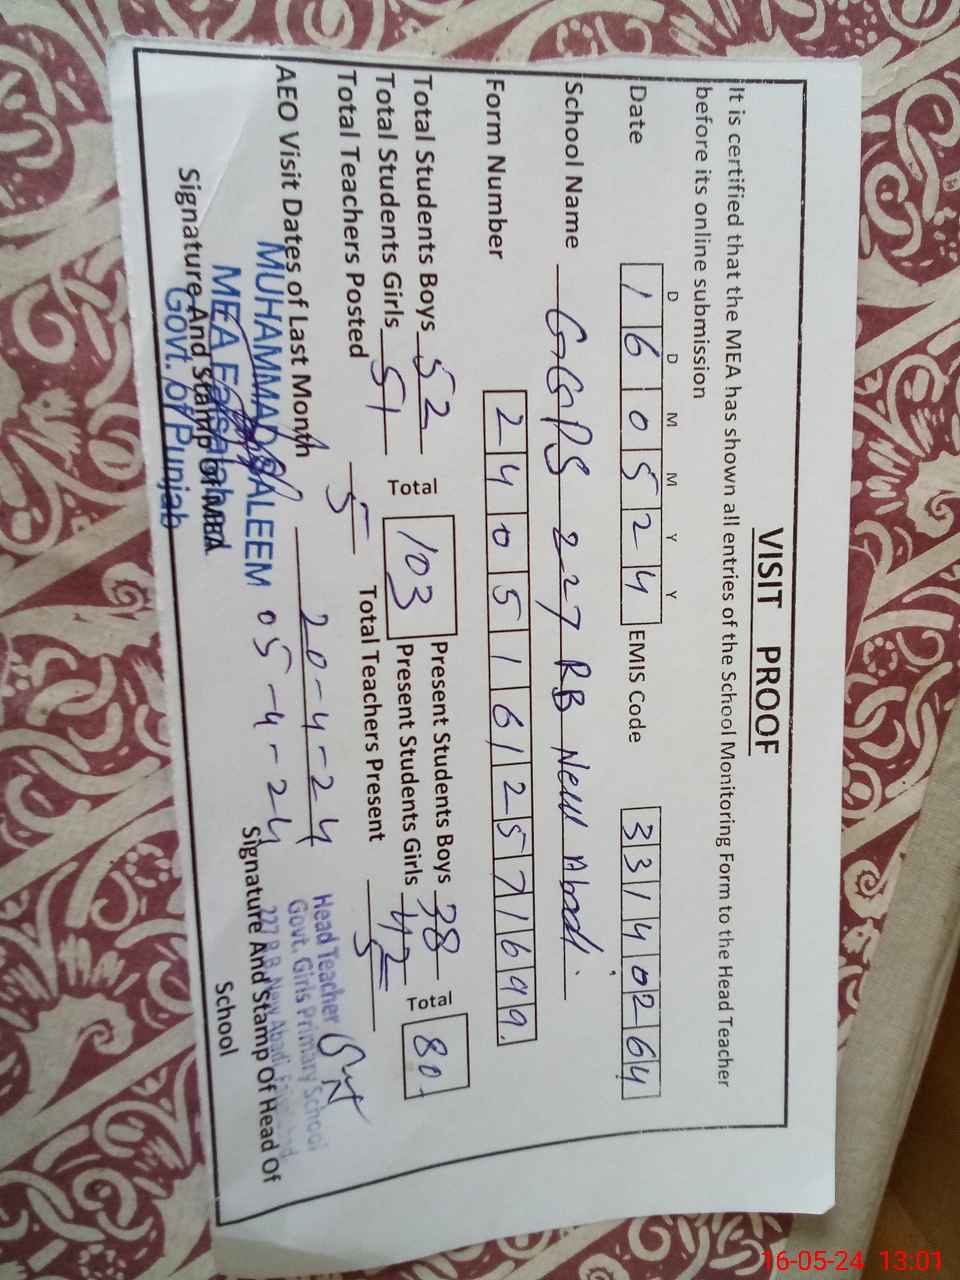 VISIT PROOF
It is certified that the MEA has shown all entries of the School Monitoring Form to the Head Teacher
before its online submission
D D M M Y Y
Date 1 6 0 5 2 4 EMIS Code 3 3 1 4 0 2 6 4
School Name GGPS 227 RB New Abadi.
Form Number 2 4 0 5 1 6 1 2 5 7 1 6 9 9
Total Students Boys 52 Total 103 Present Students Boys 38 Total 80
Total Students Girls 51 Present Students Girls 42
Total Teachers Posted 5 Total Teachers Present 5
AEO Visit Dates of Last Month 20-4-24
05-4-24
MUHAMMAD SALEEM
MEA Faisalabad
Govt. of Punjab
Signature And Stamp of MEA
Head Teacher
Govt. Girls Primary School
227 R.B New Abadi
Signature And Stamp Of Head Of
School
16-05-24 13:01